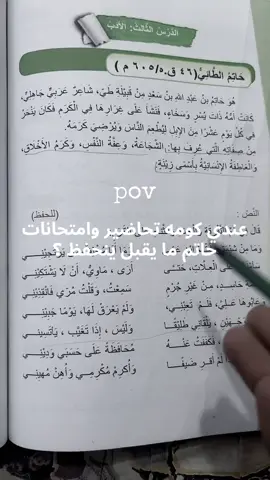 الدَّرْسُ الثَّالِثُ: الأَدَبُ
حَاتِمُ الطَّائِيُّ (٤٦ ق.هـ/٦٠٥ م)
هُوَ حَاتِمُ بنُ عَبْدِ اللهِ بنُ سَعْدٍ مِنْ قَبِيْلَةِ طَيّ، شَاعِرٌ عَرَبِيٌّ جَاهِلِيٌّ،
كَانَتْ أُمُّهُ ذَاتَ يُسْرٍ وَسَخَاءٍ، فَنَشَأَ عَلَى غِرَارِهَا فِي الْكَرَمِ فَكَانَ يَنْحَرُ
فِي كُلِّ يَوْمٍ عَشْرًا مِنَ الإِبِلِ لِيُطْعِمَ النَّاسَ وَيُرْضِيَ كَرَمَهُ.
وَمِنْ صِفَاتِهِ الَّتِي عُرِفَ بِهَا: الشَّجَاعَةُ، وَعِفَّةُ النَّفْسِ، وَكَرَمُ الأَخْلَاقِ،
وَالْعَاطِفَةُ الإِنْسَانِيَّةُ بِأَسْمَى
pov
النَّصُّ : (للحفظ)
عندي كومه تحاضير وامتحانات
خاتم ما يقبل ينحفظ ؟
يَرْتَجِيْنِي
عَلَى الْعِلَّاتِ، حَتَّى أَرَى، مَاوِيَّ، أَنْ لَا يَشْتَكِيْنِي
حَاسِدٍ، مِنْ غَيْرِ جُرْمٍ سَمِعْتُ، وَقُلْتُ مُرِّي فَانْقِذِيْنِي
عَلَيَّ، فَلَمْ تَعِبْنِي، وَلَمْ يَعْرَقْ لَهَا، يَوْمًا جَبِيْنِي
يَلْقَانِي طَلِيْقًا وَلَيْسَ، إِذَا تَغَيَّبَ، يَأْتَسِيْنِي
فَكَفَفْتُ عَنْهُ مُحَافَظَةً عَلَى حَسَبِي وَدِيْنِي
لَمْ أَقْرِ ضَيْفًا وَأُكْرِمْ مُكْرِمِي وَأُهِنْ مُهِيْنِي